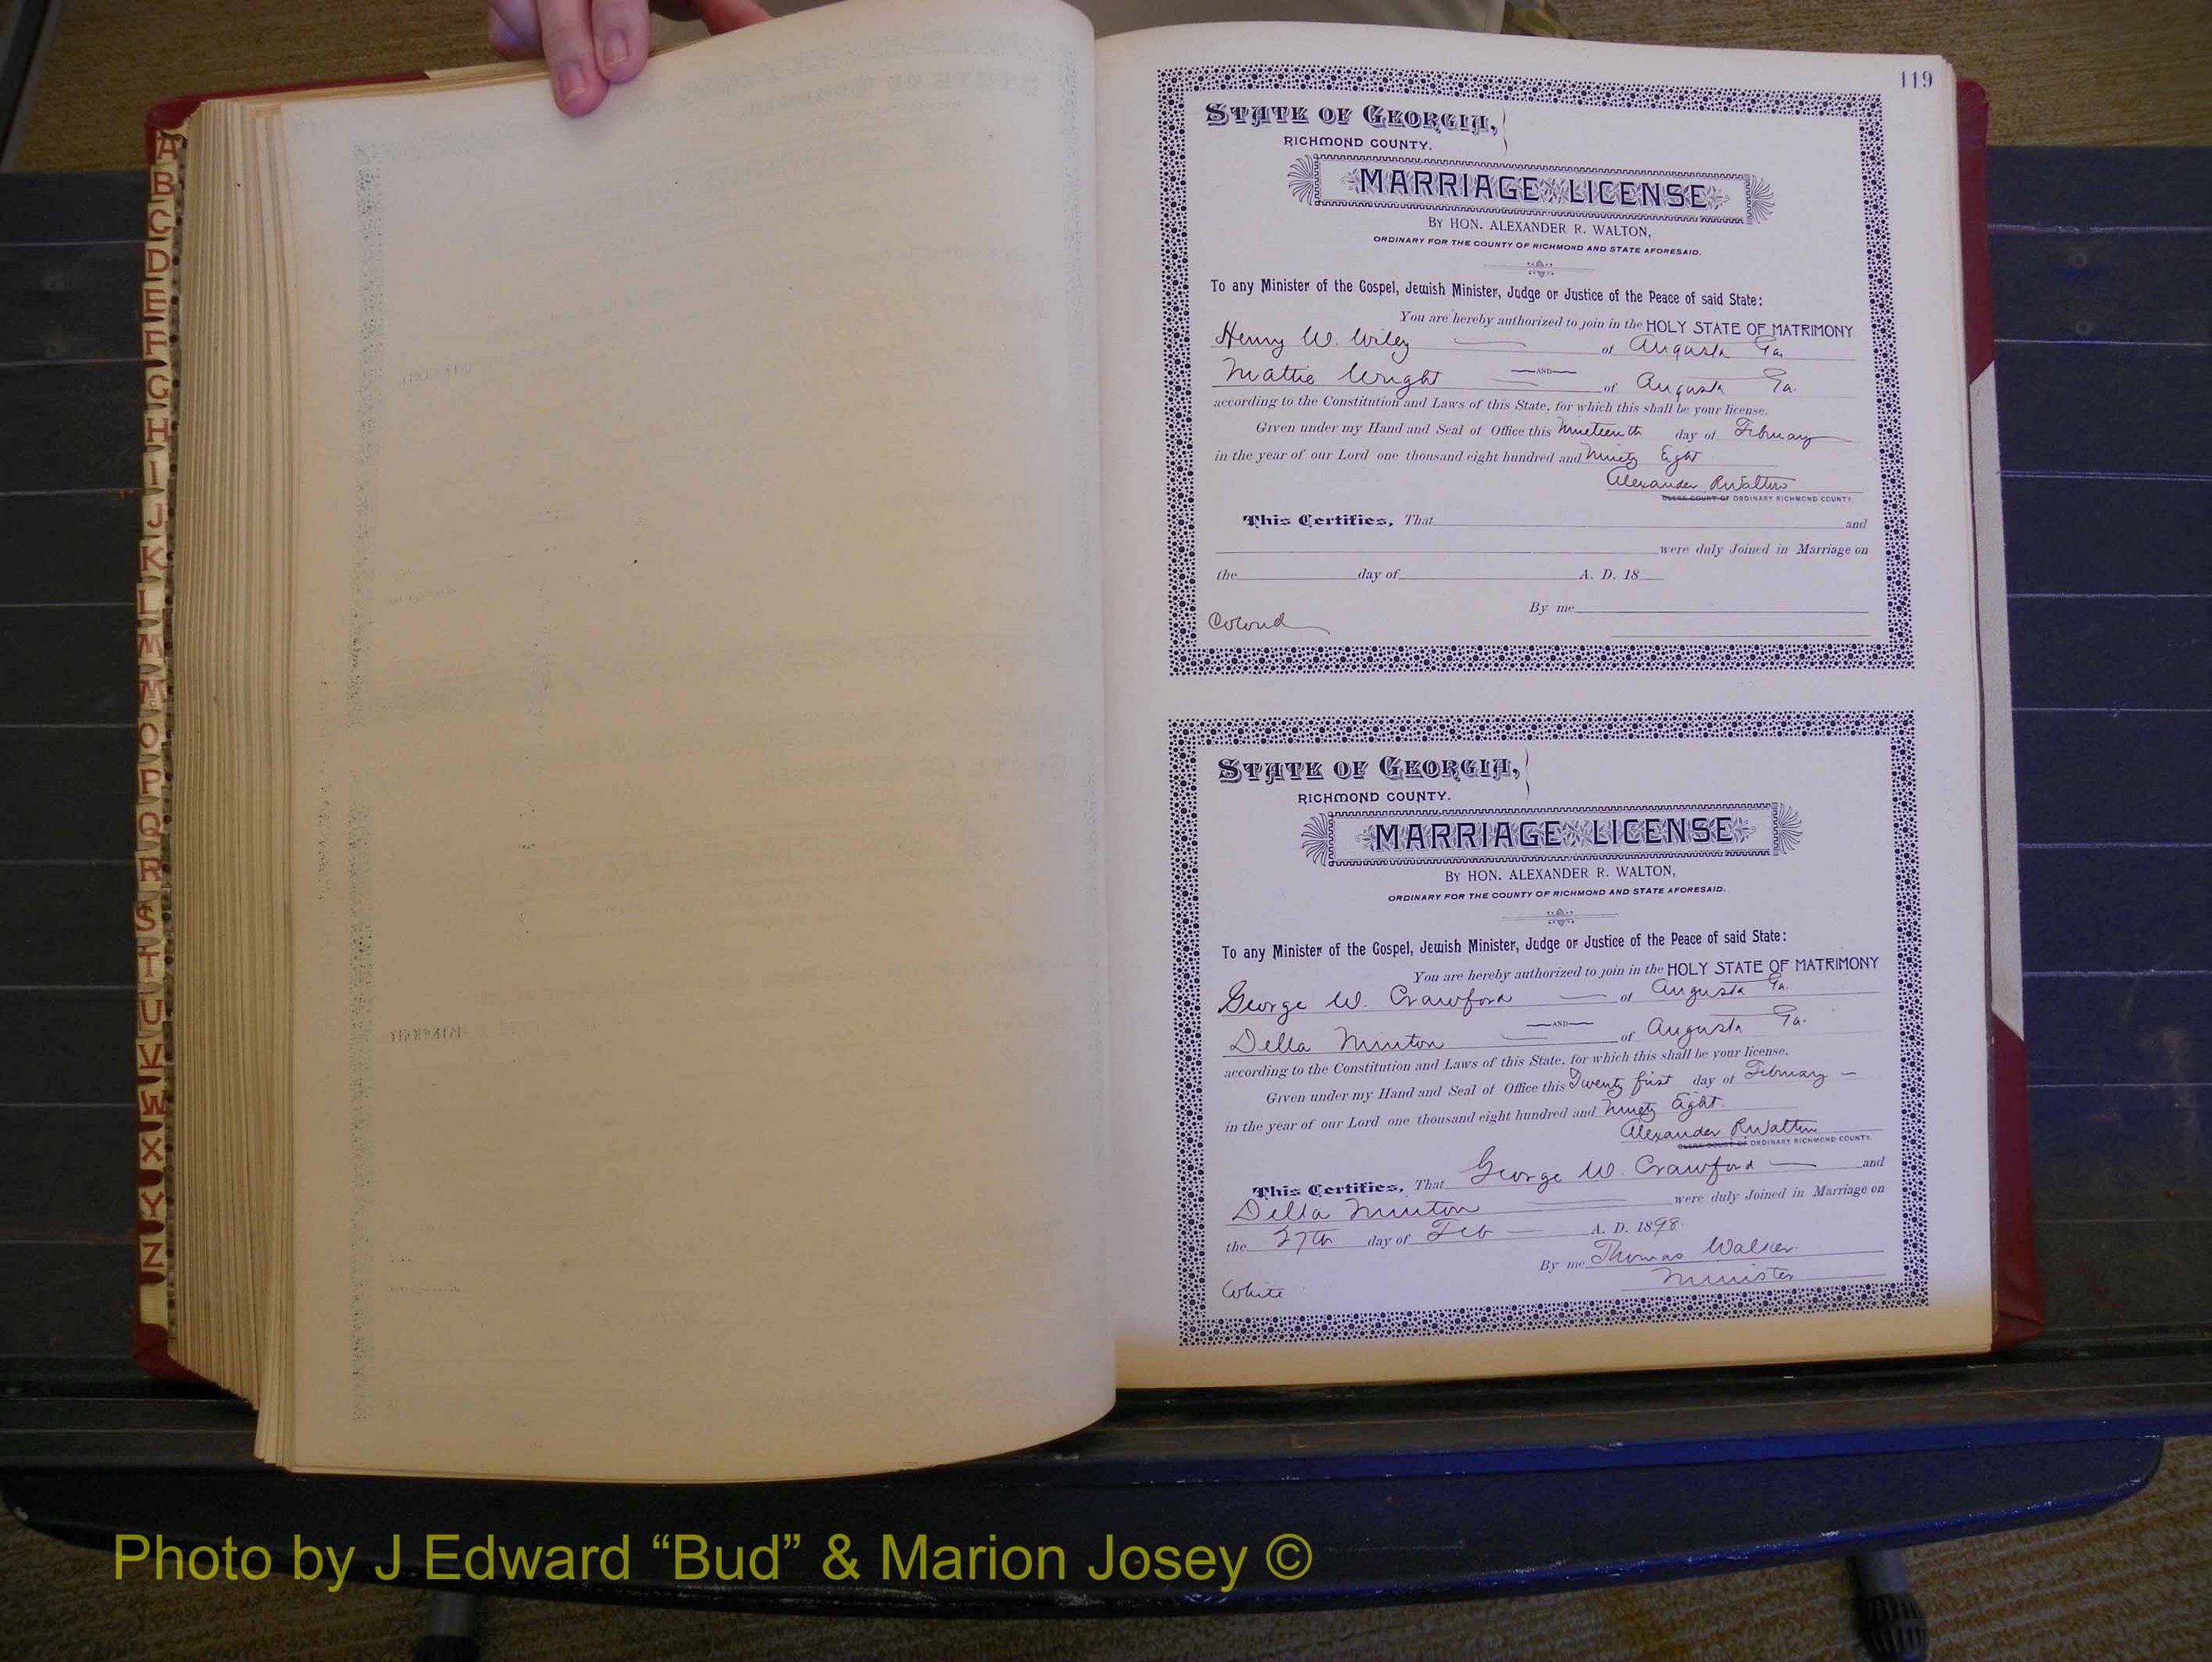 A
B
C
D
E
F
G
H
I
J
K
L
M
Mc
O
P
Q
R
S
T
U
V
W
X
Y
Z
119
STATE OF GEORGIA,
RICHMOND COUNTY.
MARRIAGE LICENSE
BY HON. ALEXANDER R. WALTON,
ORDINARY FOR THE COUNTY OF RICHMOND AND STATE AFORESAID.
To any Minister of the Gospel, Jewish Minister, Judge or Justice of the Peace of said State:
You are hereby authorized to join in the HOLY STATE OF MATRIMONY
Henry W. Wiley of Augusta Ga.
AND
Mattie Wright of Augusta Ga.
according to the Constitution and Laws of this State, for which this shall be your license.
Given under my Hand and Seal of Office this Nineteenth day of February
in the year of our Lord one thousand eight hundred and Ninety Eight
Alexander R Walton
CLERK COURT OF ORDINARY RICHMOND COUNTY.
This Certifies, That and
were duly Joined in Marriage on
the day of A. D. 18
By me
Colored
STATE OF GEORGIA,
RICHMOND COUNTY.
MARRIAGE LICENSE
BY HON. ALEXANDER R. WALTON,
ORDINARY FOR THE COUNTY OF RICHMOND AND STATE AFORESAID.
To any Minister of the Gospel, Jewish Minister, Judge or Justice of the Peace of said State:
You are hereby authorized to join in the HOLY STATE OF MATRIMONY
George W. Crawford of Augusta Ga.
AND
Della Minton of Augusta Ga.
according to the Constitution and Laws of this State, for which this shall be your license.
Given under my Hand and Seal of Office this Twenty first day of February
in the year of our Lord one thousand eight hundred and Ninety Eight.
Alexander R Walton
CLERK COURT OF ORDINARY RICHMOND COUNTY.
This Certifies, That George W. Crawford and
Della Minton were duly Joined in Marriage on
the 27th day of Feb A. D. 1898.
By me Thomas Walker.
Minister
White
Photo by J Edward “Bud” & Marion Josey ©